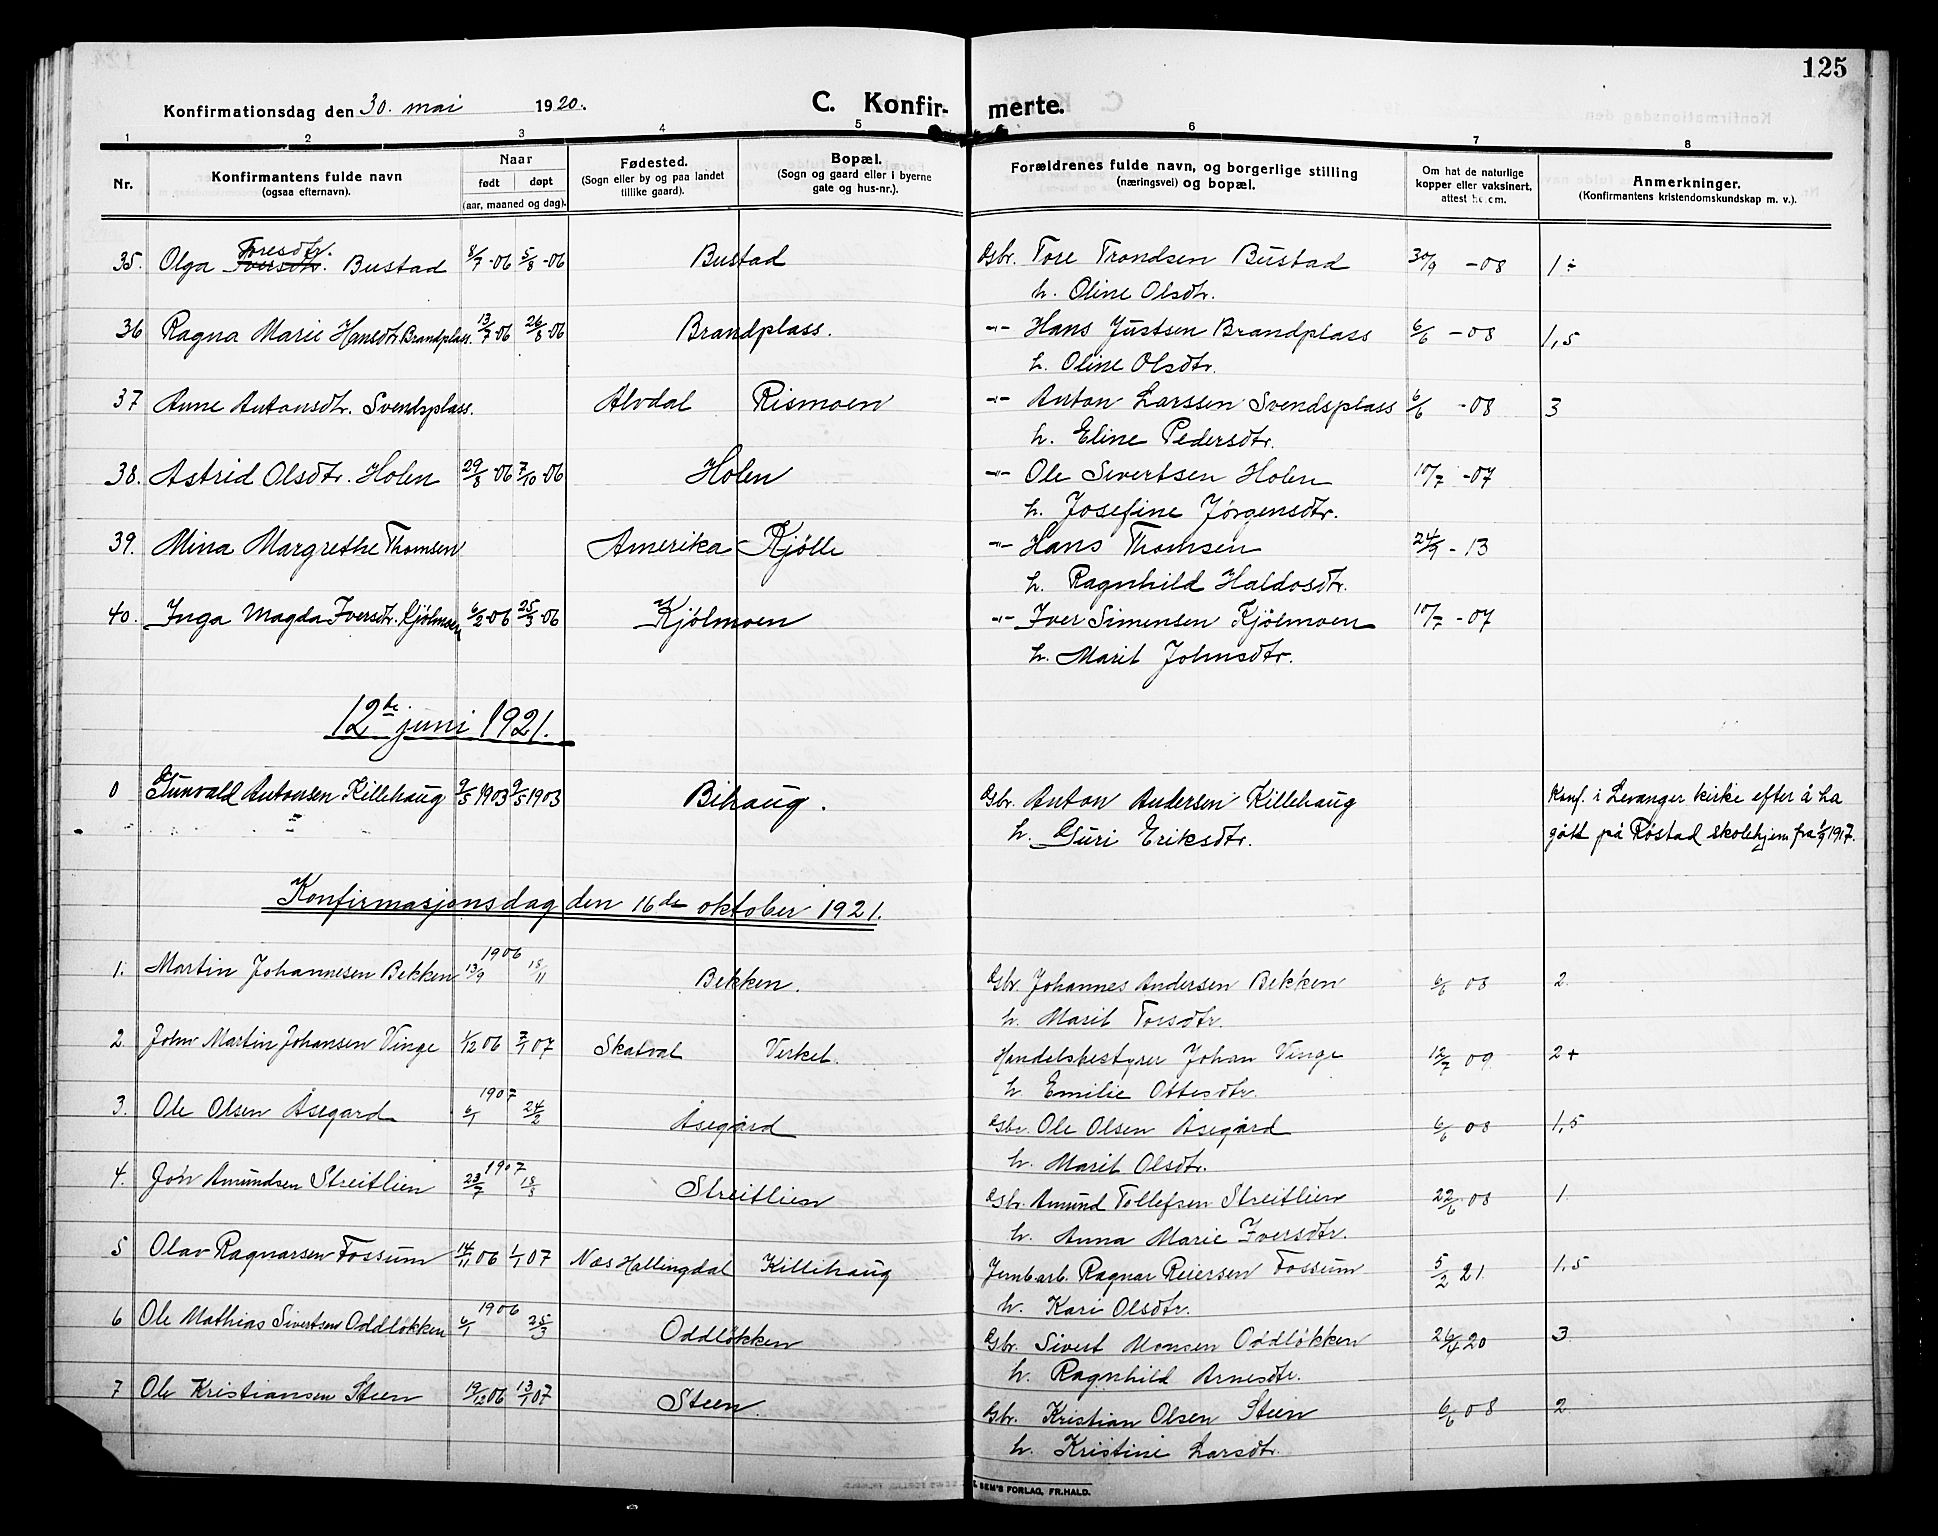 125
Konfirmationsdag den 30. mai 1920. C. Konfirmerte.
1 2 3 4 5 6 7 8
Nr. Konfirmantens fulde navn (ogsaa efternavn). Naar født døpt (aar, maaned og dag). Fødested. (Sogn eller by og paa landet tillike gaard). Bopæl. (Sogn og gaard eller i byerne gate og hus-nr.). Forældrenes fulde navn, og borgerlige stilling (næringsvei) og bopæl. Om hat de naturlige kopper eller vaksinert, attest herom. Anmerkninger. (Konfirmantens kristendomskundskap m. v.).
35. Olga Toresdtr. Iversdtr. Bustad 8/7-06 5/8-06 Bustad Gbr. Tore Trondsen Bustad 30/9 -08 1÷
h. Oline Olsdtr.
36 Ragna Marie Hansdtr. Brandplass. 13/7-06 26/8-06 Brandplass. -"- Hans Justsen Brandplass 6/6 -08 1,5
h. Oline Olsdtr.
37 Anne Antonsdtr. Svendsplass. Alvdal Rismoen -"- Anton Larssen Svendsplass 6/6 -08 3
h. Eline Pedersdtr.
38. Astrid Olsdtr. Holen 29/8-06 7/10-06 Holen -"- Ole Sivertsen Holen 10/7 -07
h. Josefine Jørgensdtr.
39. Mina Margrethe Thomsen Amerika Kjölle -"- Hans Thomsen 24/9 -13
h. Ragnhild Haldosdtr.
40. Inga Magda Iversdtr. Kjölmoen 6/2-06 25/3-06 Kjölmoen -"- Iver Simensen Kjölmoen 10/7 -07
h. Marit Johnsdtr.
12te juni 1921.
0 Gunvald Antonsen Killehaug 9/5 1903 9/5 1903 Bihaug. Gbr. Anton Andersen Killehaug Konf. i Levanger kirke efter å ha
h. Guri Eriksdtr. gått på Röstad skolehjem fra 1/9 1917.
Konfirmasjonsdag den 16de oktober 1921.
1. Martin Johannesen Bekken 1906 13/9 18/11 Bekken. Gbr. Johannes Andersen Bekken 6/6 08 2
h. Marit Torsdtr.
2. John Martin Johansen Vinge 1/12 06 7/1 07 Skatval Verket. Handelsbestyrer Johan Vinge 12/7 09 2+
h Emilie Ottesdtr.
3. Ole Olsen Åsegard 1907 6/1 24/2 Åsegård Gbr. Ole Olsen Åsegård 6/6 08 1,5
h. Marit Olsdtr.
4. Jon Amundsen Streitlien 1907 23/7 18/8 Streitlien Gbr. Amund Tollefsen Streitlien 22/6 08 1
h. Anna Marie Iversdtr.
5 Olav Ragnarsen Fossum 14/11 06 1/1 07 Næs Hallingdal Killihaug Jernbarb. Ragnar Reiersen Fossum 5/2 21 1,5
h. Kari Olsdtr.
6 Ole Mathias Sivertsen Oddlökken 1906 6/1 25/3 Oddlökken Gbr. Sivert Monsen Oddlökken 26/4 20 3
h. Ragnhild Arnesdtr.
7 Ole Kristiansen Steen 19/12 06 13/1 07 Steen. Gbr. Kristian Olsen Steen 6/6 08 2
h. Kristine Larsdtr.
SEM'S FORLAG, FR.HALD.